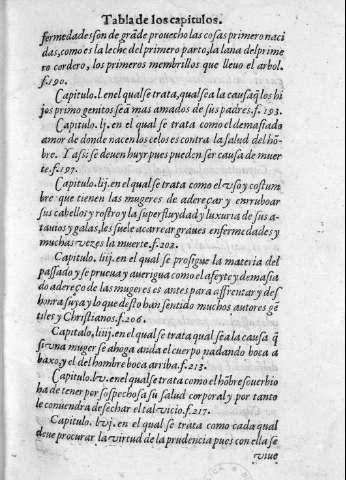 Tabla de los capitulos.
fermedades son de grãde prouecho las cosas primero naci
das, como es la leche del primero parto, la lana del prime
ro cordero, los primeros membrillos que lleuo el arbol.
f.190.
Capitulo.l.en el qual se trata, qual sea la causa q̃ los hi
jos primogenitos sea mas amados de sus padres.f.193.
Capitulo. lj. en el qual se trata como el demasiado
amor de donde nacen los celos es contra la salud del hõ-
bre. Y assi se deuen huyr pues pueden ser causa de muer
te.f.197.
Capitulo.lij.en el qual se trata como el vso y costum
bre que tienen las mugeres de adereçar y enruboar
sus cabellos y rostro y la superfluydad y luxuria de sus a-
tauios y galas, les suele acarrear graues enfermedades y
muchas vezes la muerte.f.202.
Capitulo. liij. en el qual se prosigue la materia del
passado y se prueua y auerigua como el afeyte y demasia
do adereço de las mugeres es antes para affrentar y des
honra suya y lo que desto han sentido muchos autores gẽ
tiles y Christianos.f.206.
Capitulo, liiij. en el qual se trata qual sea la causa q̃
si vna muger se ahoga anda el cuerpo nadando boca a
baxo, y el del hombre boca arriba.f.213.
Capitulo.lv.en el qual se trata como el hõbre scuerbio
ha de tener por sospechosa su salud corporal y por tanto
le conuendra desechar el tal vicio.f.217.
Capitulo. lvj. en el qual se trata como cada qual
deue procurar la virtud de la prudencia pues con ella se
viue